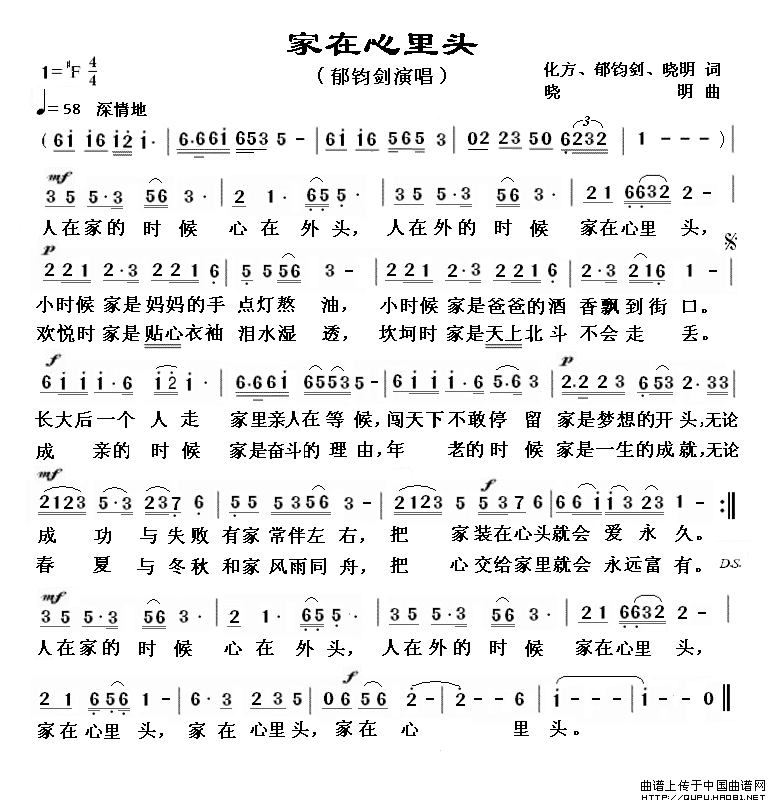 家在心里头
1=♯F 4/4
（郁钧剑演唱）
化方、郁钧剑、晓明 词
晓明 曲
♩=58 深情地
(6i i6 i2 i· | 6·66i 653 5 - | 6i i6 565 3 | 02 23 50 6232 | 1 - - -)
mf
35 5·3 56 3· | 2 1· 65 5· | 35 5·3 56 3· | 21 6632 2 -
人在家的 时候 心在外头， 人在外的 时候 家在心里头，
p
221 2·3 221 6 | 5 556 3 - | 221 2·3 221 6 | 2·3 216 1 -
小时候 家是妈妈的手 点灯熬 油， 小时候 家是爸爸的酒 香飘到街口。
欢悦时 家是贴心衣袖 泪水湿 透， 坎坷时 家是天上北斗 不会走 丢。
f p
6i i i·6 i2 i· | 6·66i 65535 | 6i i i 62 5·63 | 2·223 653 2·33
长大后一个 人走 家里亲人在等候，闯天下不敢停 留 家是梦想的开头，无论
成 亲的时候 家是奋斗的 理由，年 老的时候 家是一生的成就，无论
mf f
2123 5·3 2376 | 55 5356 3· | 2123 5 5376 | 66 ii3 23 1 - :‖
成 功 与失败 有家常伴左右，把 家装在心头就会 爱永久。
春 夏 与冬秋 和家风雨同舟，把 心交给家里就会 永远富有。 D.S.
mf
35 5·3 56 3· | 2 1· 65 5· | 35 5·3 56 3· | 21 6632 2 -
人在家的 时候 心在外头， 人在外的 时候 家在心里头，
f
21 656 1 - | 6·3 235 | 06 56 2 - | 2 - - | i - - - | i - - 0 ‖
家在心里 头， 家在心里头，家在 心 里 头。
曲谱上传于中国曲谱网
HTTP://QUPU.HAO81.NET